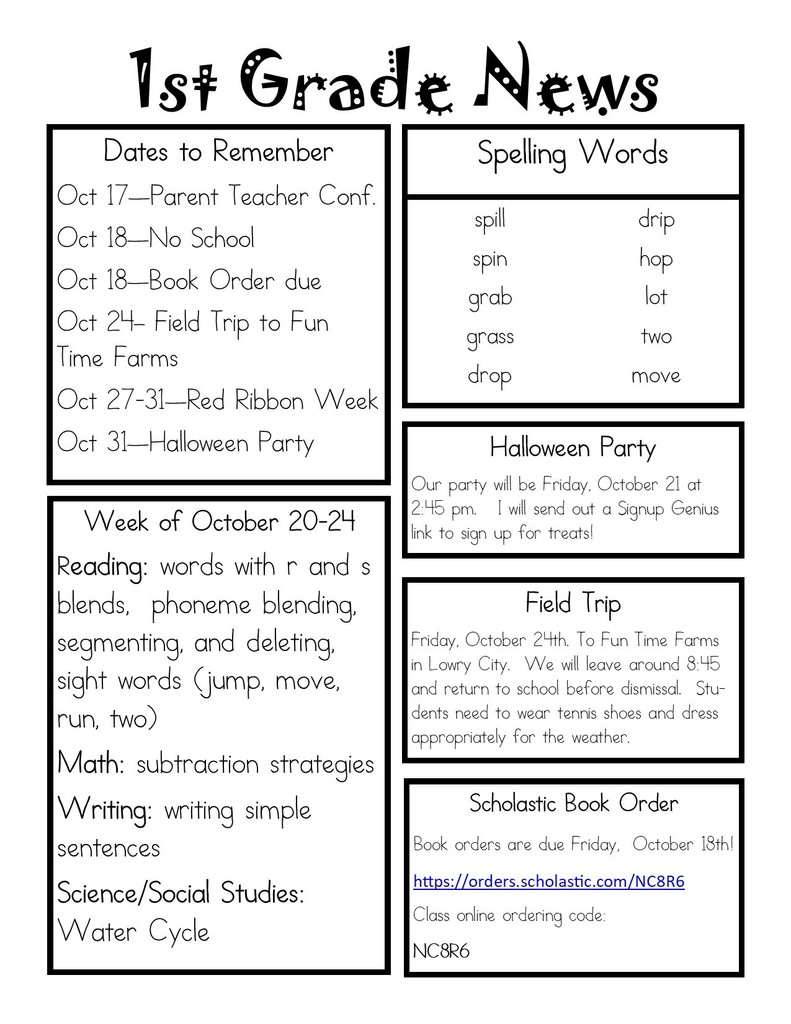 1st Grade News
Dates to Remember
Oct 17—Parent Teacher Conf.
Oct 18—No School
Oct 18—Book Order due
Oct 24– Field Trip to Fun
Time Farms
Oct 27-31—Red Ribbon Week
Oct 31—Halloween Party
Week of October 20-24
Reading: words with r and s
blends,  phoneme blending,
segmenting, and deleting,
sight words (jump, move,
run, two)
Math: subtraction strategies
Writing: writing simple
sentences
Science/Social Studies:
Water Cycle
Spelling Words
spill drip
spin hop
grab lot
grass two
drop move
Halloween Party
Our party will be Friday, October 21 at
2:45 pm.   I will send out a Signup Genius
link to sign up for treats!
Field Trip
Friday, October 24th. To Fun Time Farms
in Lowry City.  We will leave around 8:45
and return to school before dismissal.  Stu-
dents need to wear tennis shoes and dress
appropriately for the weather.
Scholastic Book Order
Book orders are due Friday,  October 18th!
https://orders.scholastic.com/NC8R6
Class online ordering code:
NC8R6